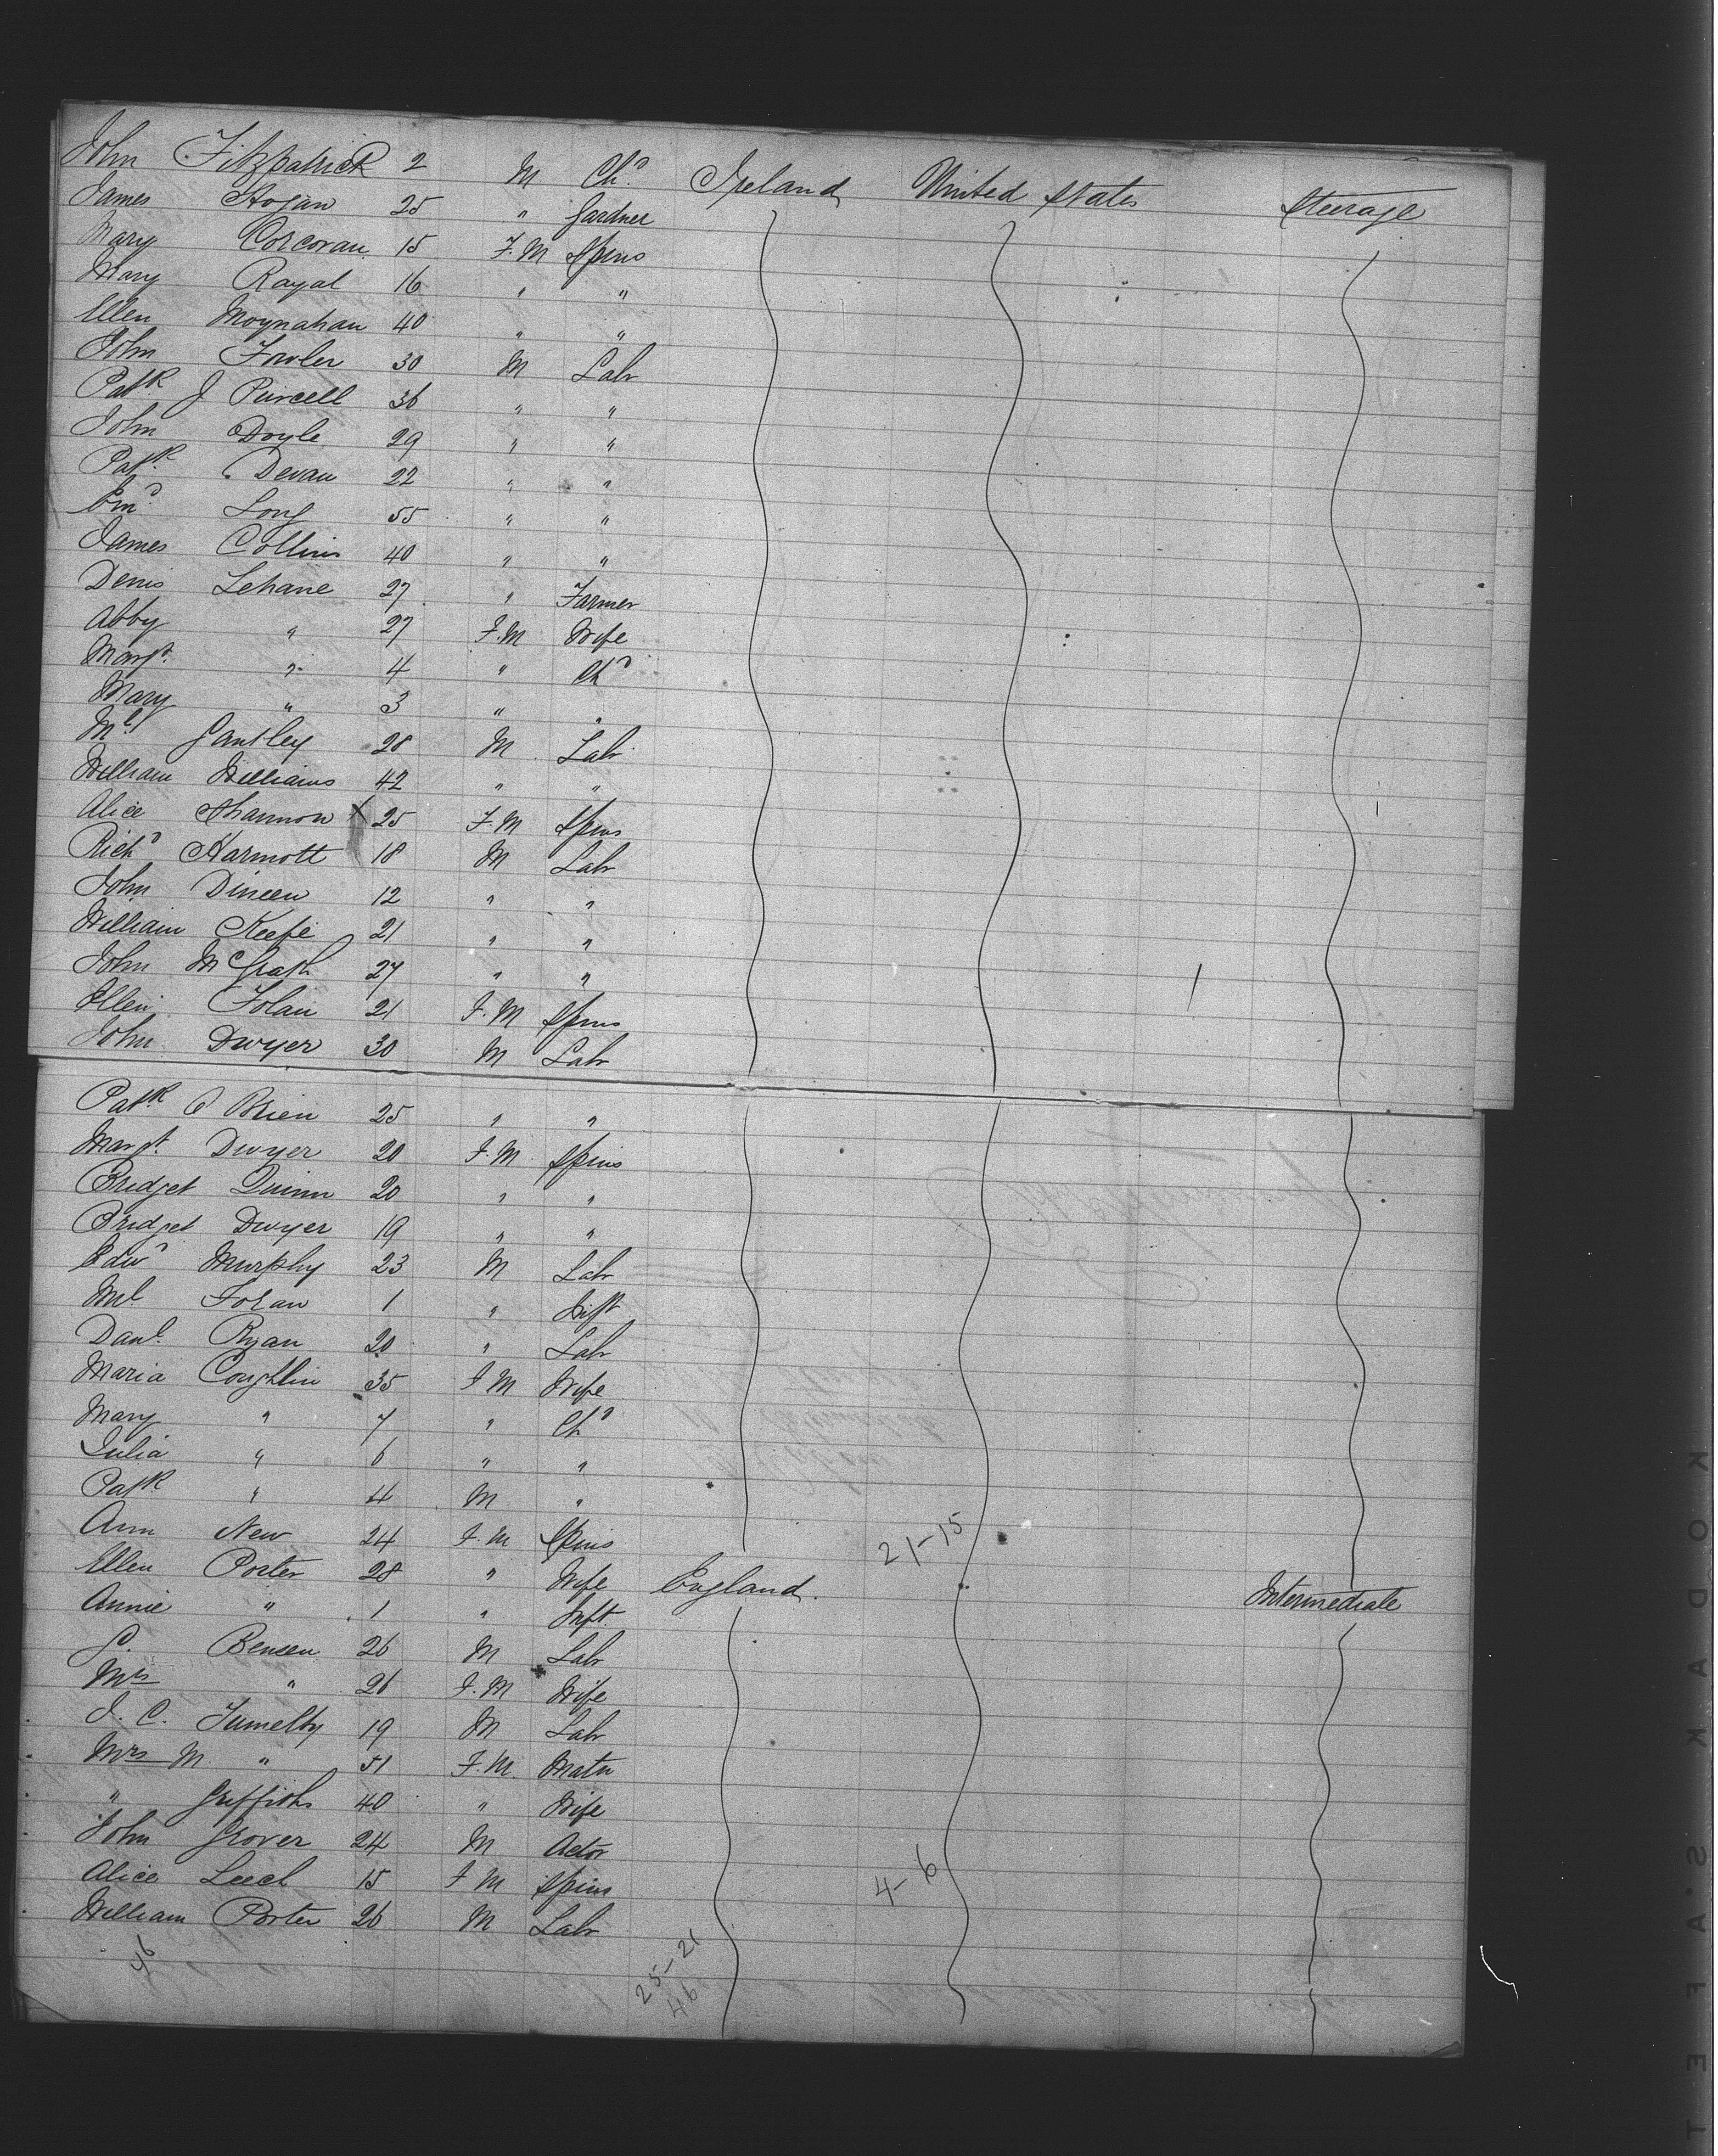 John Fitzpatrick 2 M Chd Ireland United States Steerage
James Hogan 25 " Gardner
Mary Corcoran 15 F.M Spins
Mary Royal 16 " "
Ellen Moynahan 40 " "
John Fowler 30 M Labr
Patk J Purcell 36 " "
John Doyle 29 " "
Patk Devan 22 " "
Long 55 " "
James Collins 40 " "
Denis Lehane 27 " Farmer
Abby " 27 F.M Wife
Margt. " 4 " Chd
Mary " 3 " "
Ml Gantley 28 M Labr
William Williams 42 " "
Alice Shannon X 25 F.M Spins
Richd Harmott 18 M Labr
John Dineen 12 " "
William Keefe 21 " "
John McGrath 27 " "
Ellen Folan 21 F.M Spins
John Dwyer 30 M Labr
Patk O Brien 25 " "
Margt. Dwyer 20 F.M Spins
Bridget Quinn 20 " "
Bridget Dwyer 19 " "
Edwd Murphy 23 M Labr
Ml Foran 1 " Inft
Danl. Ryan 20 " Labr
Maria Coughlin 35 F M Wife
Mary " 7 " Chd
Julia " 6 " "
Patk " 4 M "
Ann New 24 F.M Spins 21-15
Ellen Porter 28 " Wife England. Intermediate
Annie " 1 " Inft.
Bensen 26 M Labr
Mrs " 26 F.M Wife
J. C. Tumelty 19 M Labr
Mrs M " 51 F.M. Matn
" Griffiths 40 " Wife
John Grover 24 M Actor
Alice Leech 15 F M Spins 4-6
William Porter 26 M Labr
46 25-21
46
KODAK S.A.FE.T